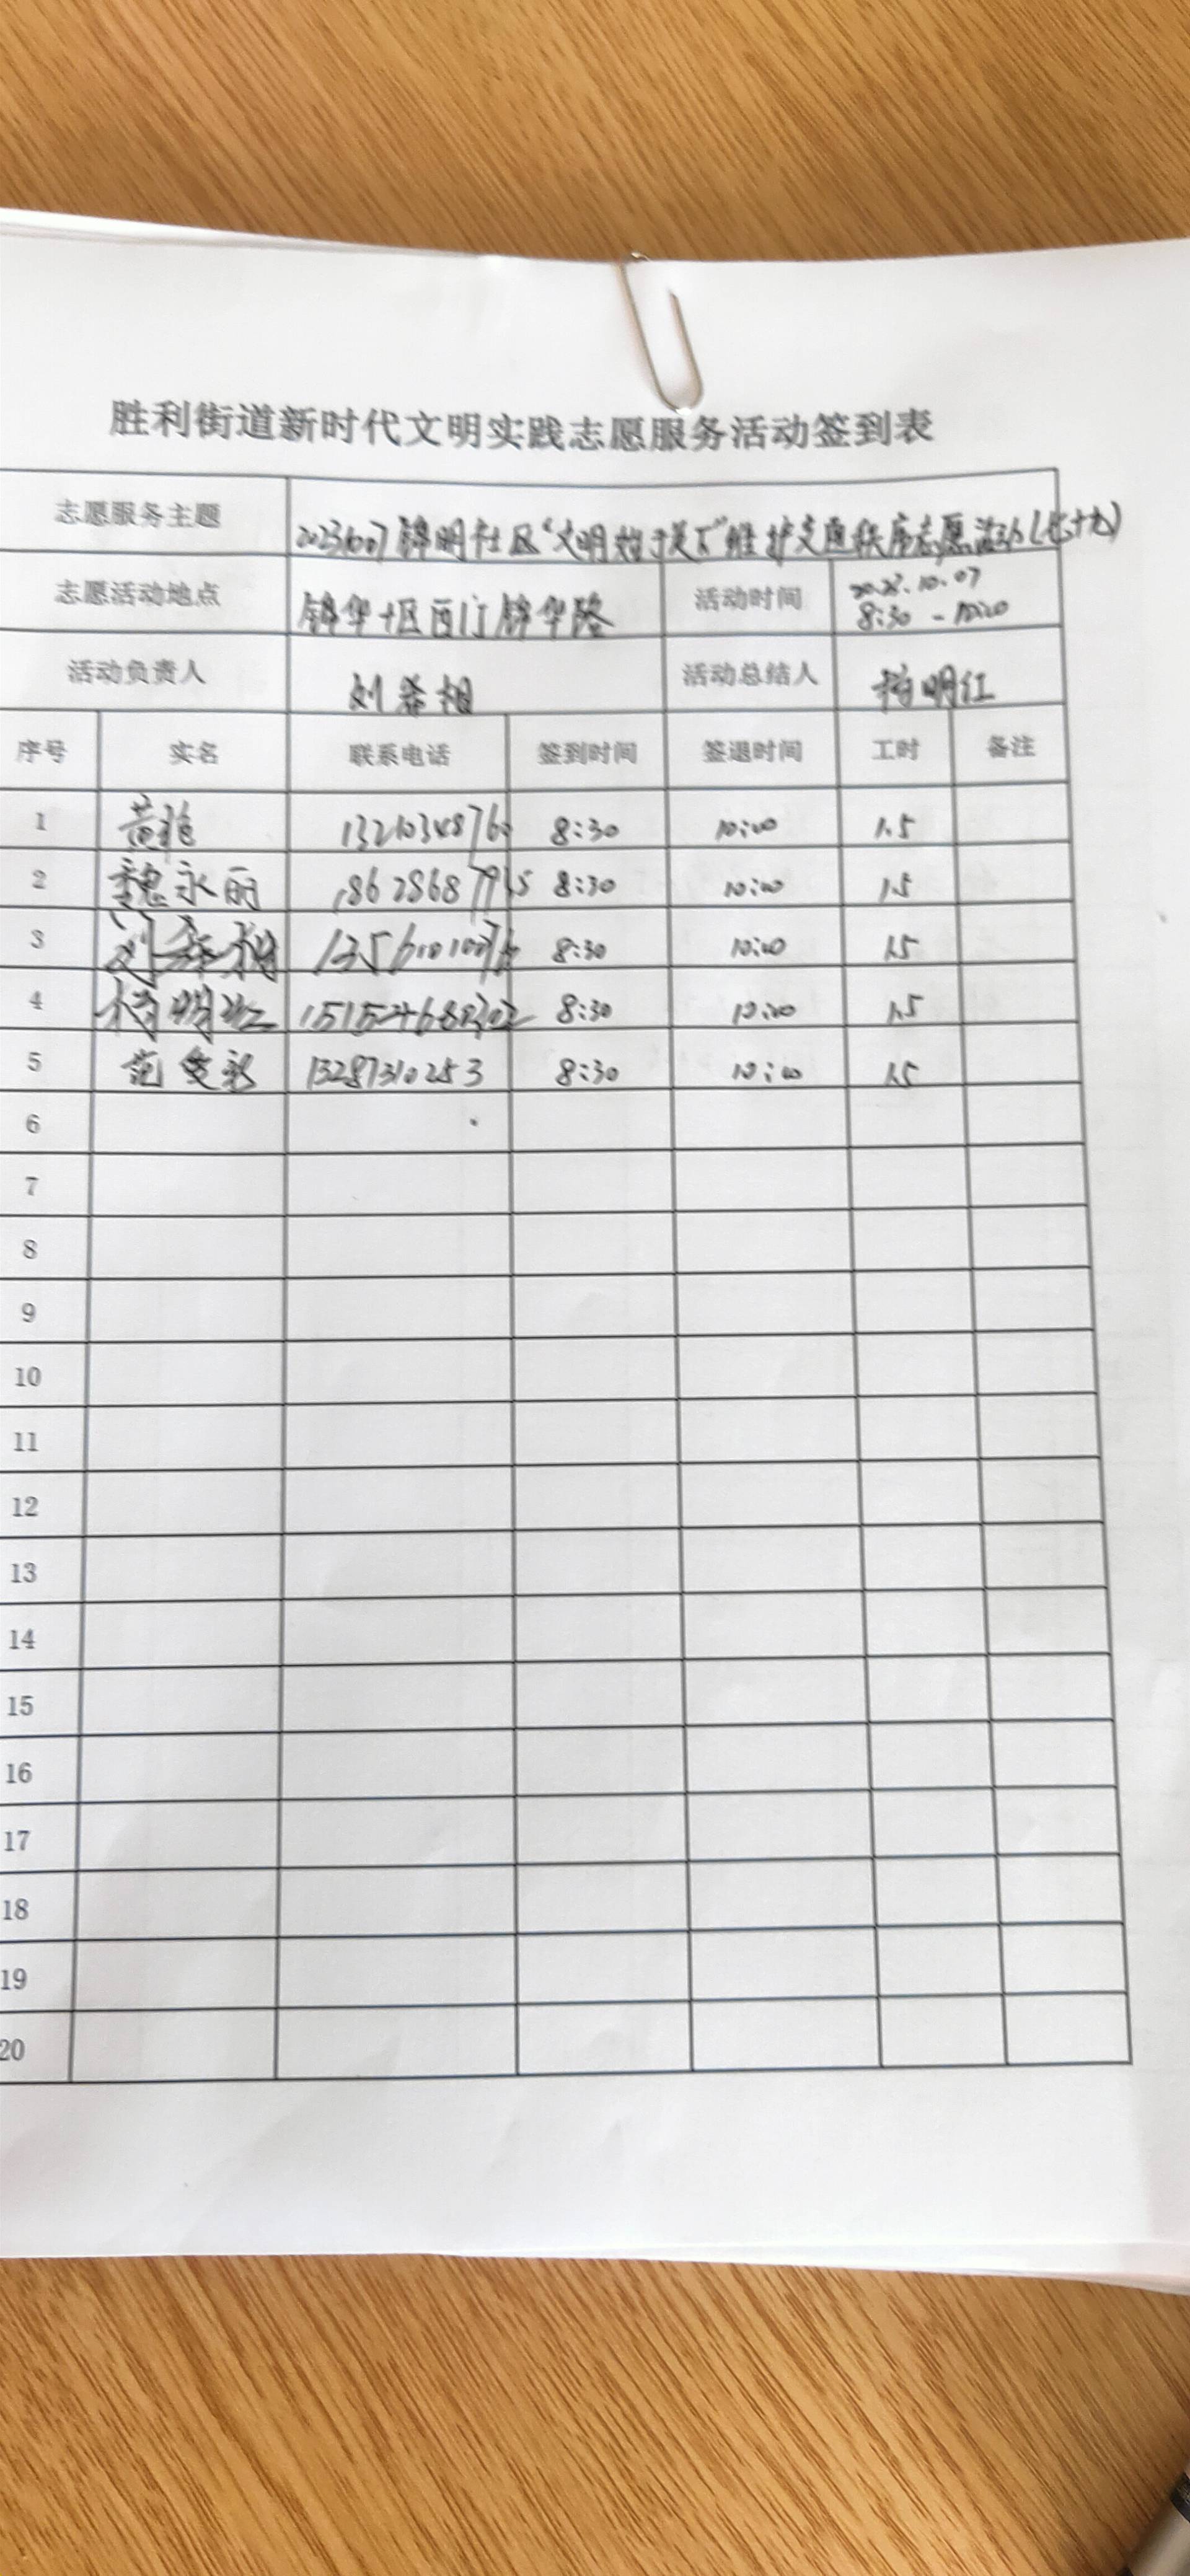 胜利街道新时代文明实践志愿服务活动签到表
志愿服务主题 20231007锦明社区“文明始于足下”维护交通秩序志愿活动(七十九)
志愿活动地点 锦华十区西门锦华路 活动时间 2023.10.07
8:30-10:00
活动负责人 刘希相 活动总结人 杨明红
序号 实名 联系电话 签到时间 签退时间 工时 备注
1 黄艳 13210348760 8:30 10:00 1.5
2 魏永丽 8:30 10:00 1.5
3 8:30 10:00 1.5
4 杨明红 8:30 10:00 1.5
5 范 13287310253 8:30 10:00 1.5
6
7
8
9
10
11
12
13
14
15
16
17
18
19
20